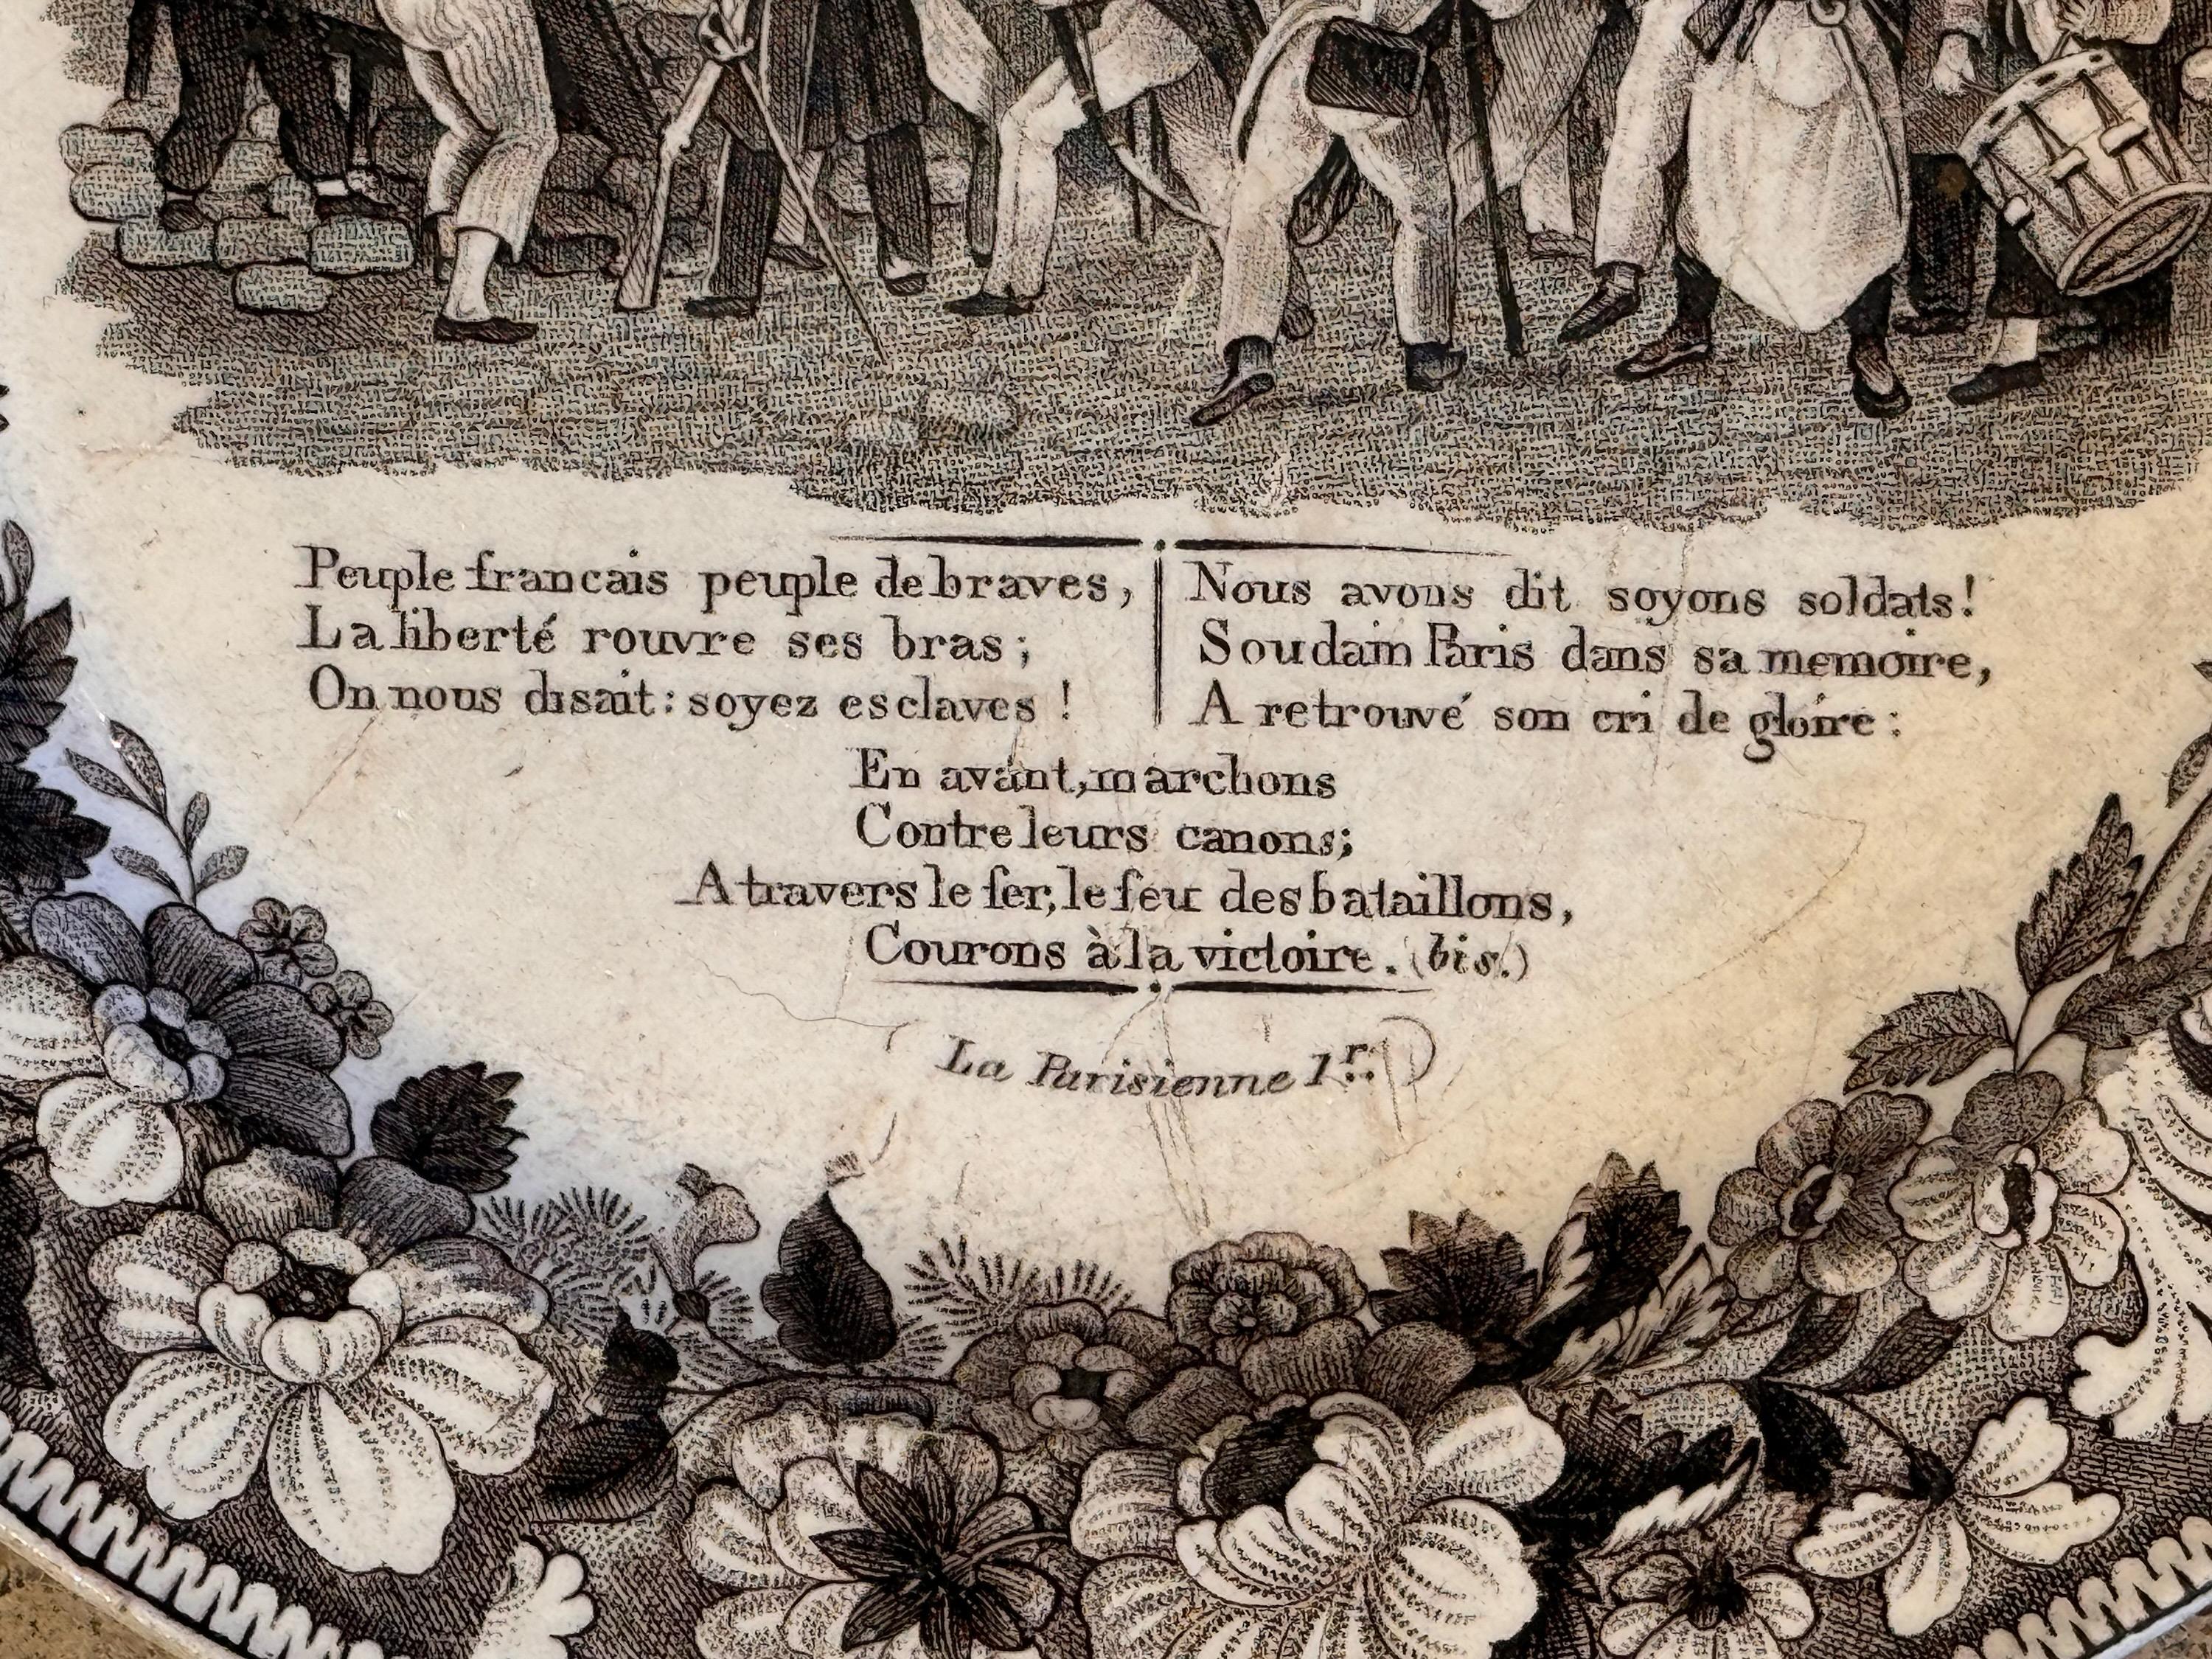 Peuple francais peuple de braves,
La liberté rouvre ses bras;
On nous disait: soyez esclaves !
Nous avons dit soyons soldats!
Soudain Paris dans sa memoire,
A retrouvé son cri de gloire:
En avant, marchons
Contre leurs canons;
A travers le fer, le feu des bataillons,
Courons à la victoire. (bis.)
La Parisienne 1r.